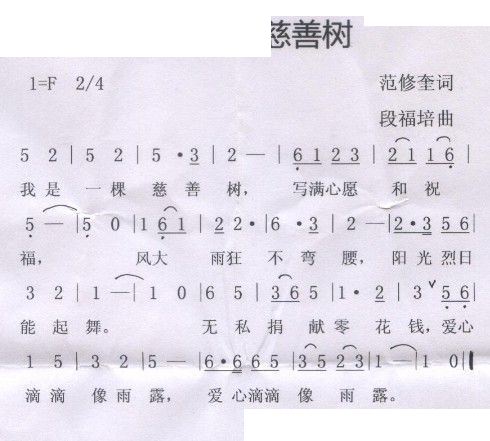 慈善树
1=F 2/4 范修奎词
段福培曲
5 2 | 5 2 | 5 · 3 | 2 — | 6 1 2 3 | 2 1 1 6 |
我是 一棵 慈善树, 写满心愿 和祝
5 — | 5 0 | 1 6 1 | 2 2 · | 6 · 3 | 2 — | 2 · 3 5 6 |
福, 风大 雨狂 不弯腰, 阳光烈日
3 2 | 1 — | 1 0 | 6 5 | 3 6 5 | 1 · 2 | 3 ∨ 5 6 |
能起舞。 无私捐献零花钱,爱心
1 5 | 3 2 | 5 — | 6 · 6 6 5 | 3 5 2 3 | 1 — | 1 0 ‖
滴滴 像雨露, 爱心滴滴 像 雨露。